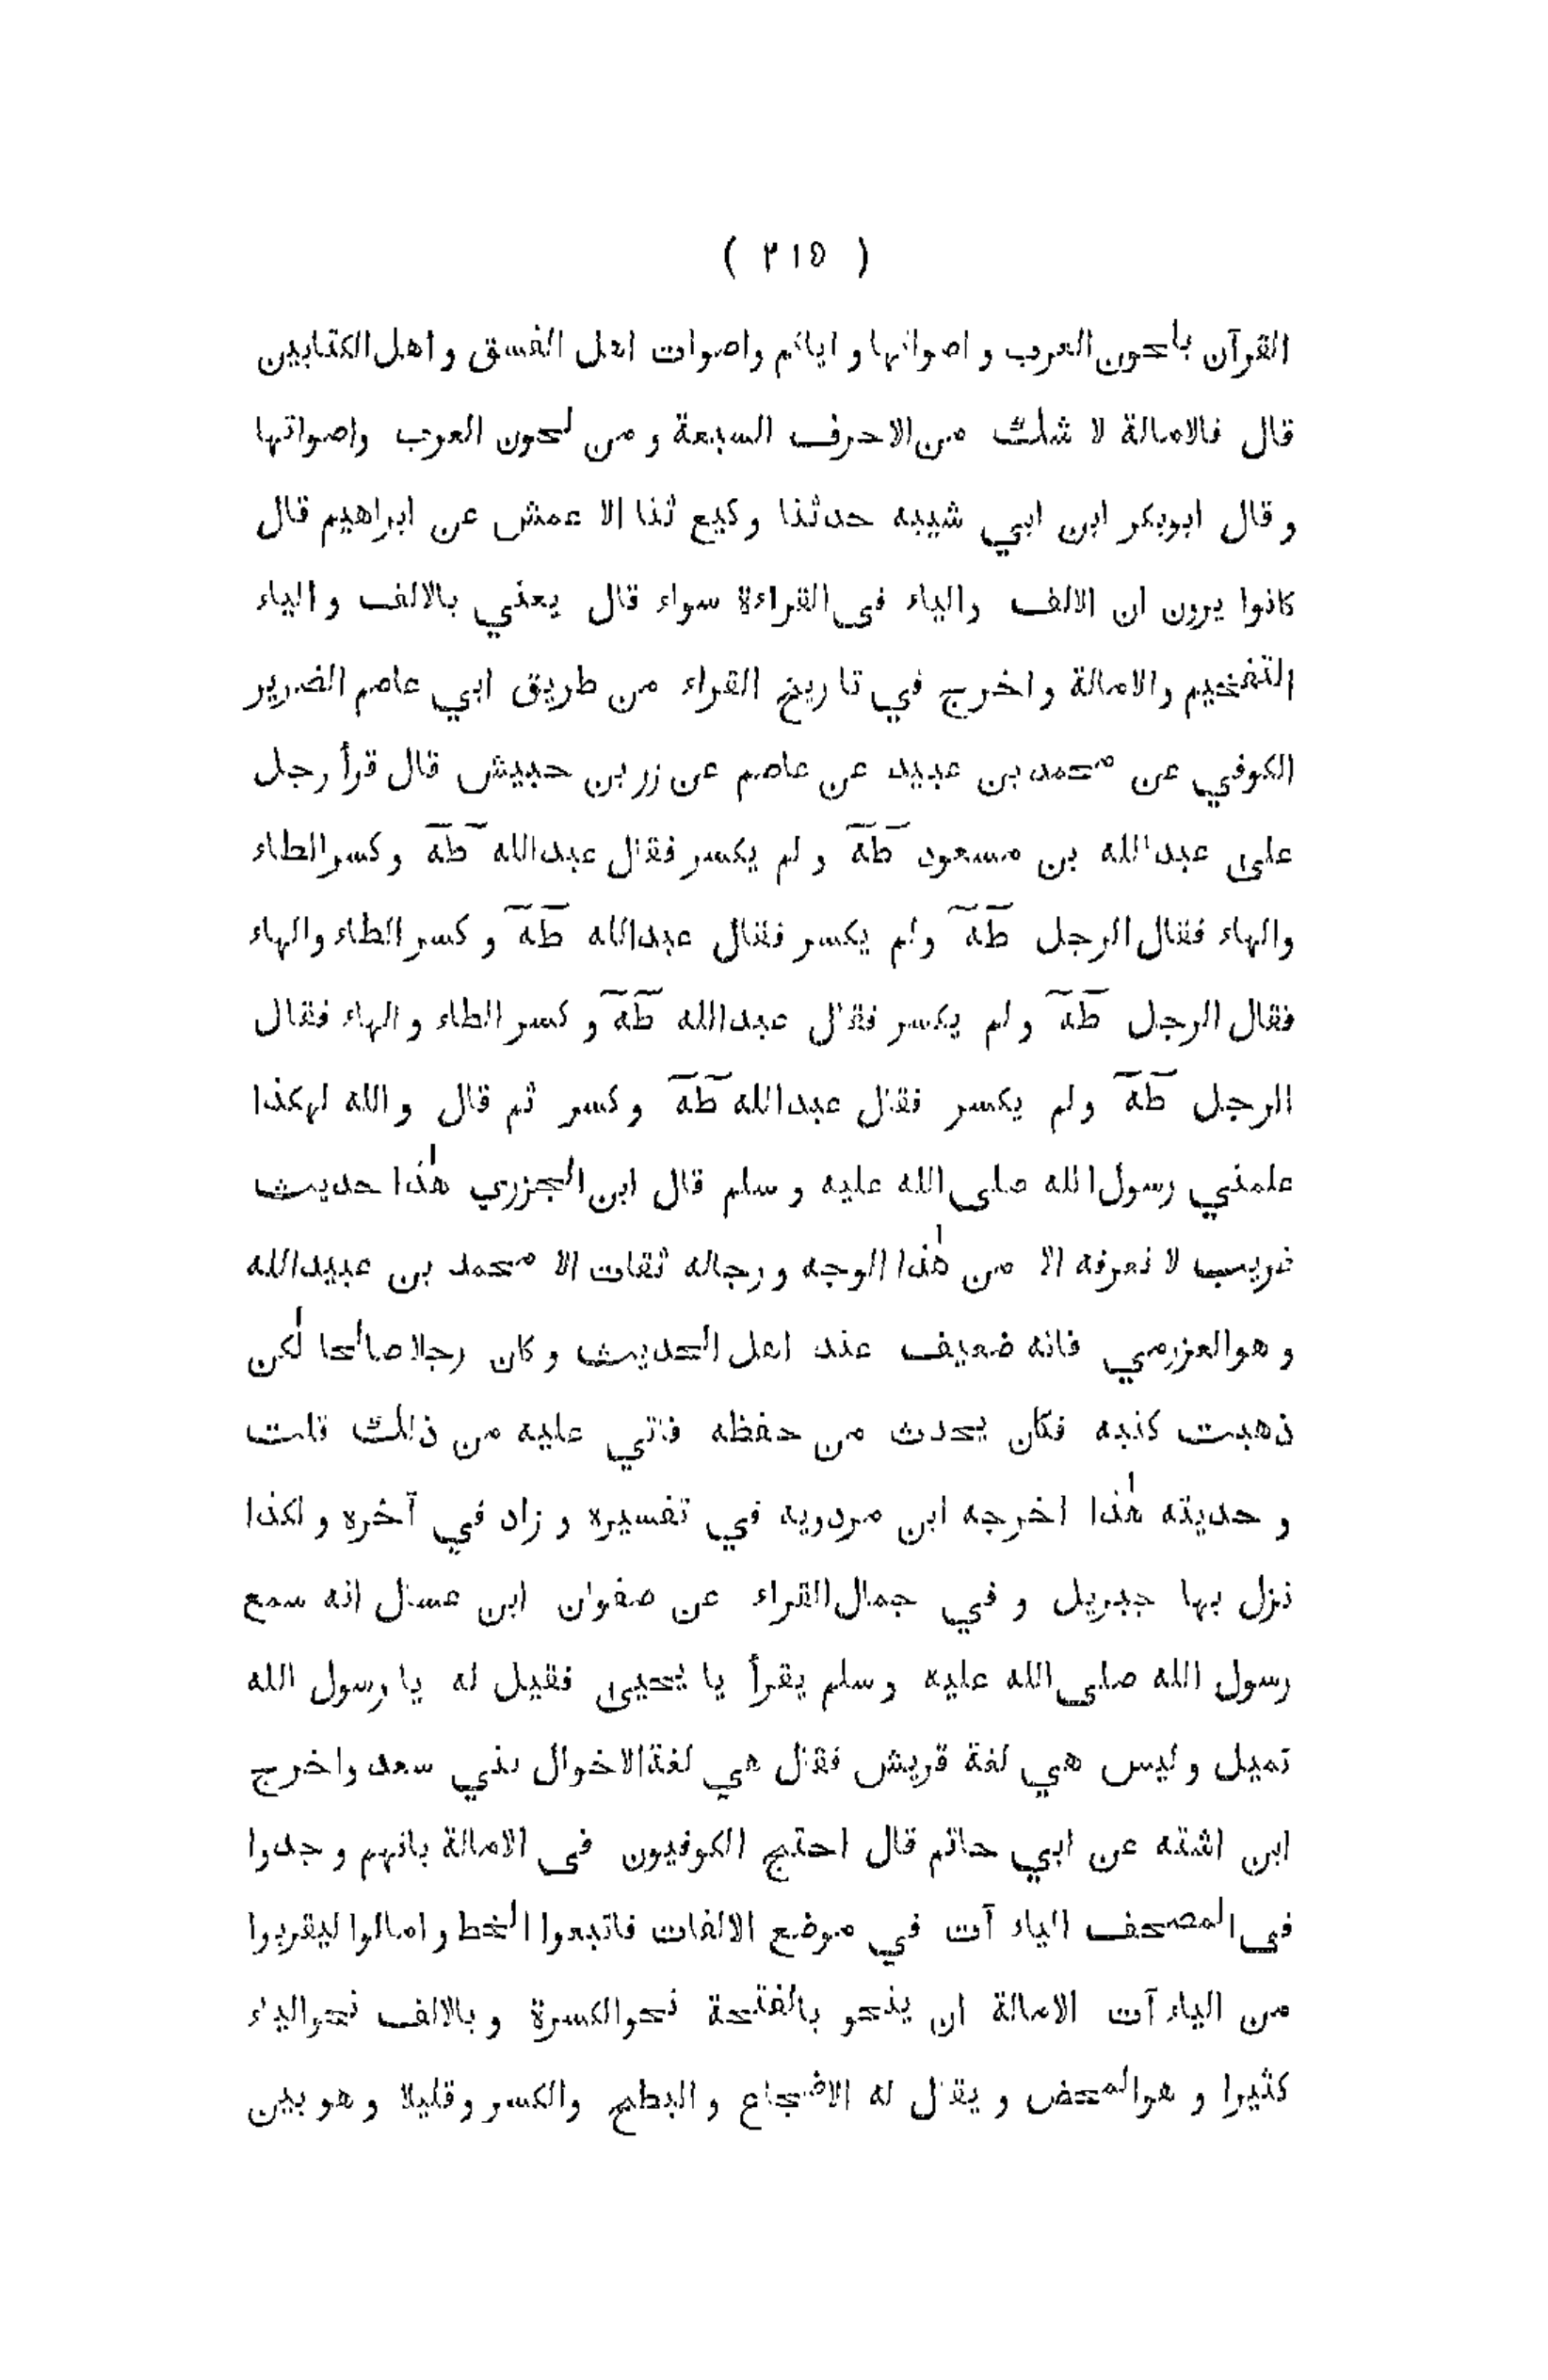 ( ٢١٥ )
القرآن بلحون العرب و اصواتها و اياكم واصوات اهل الفسق و اهل الكتابين
قال فالامالة لا شك من الاحرف السبعة و من لحون العرب واصواتها
و قال ابوبكر ابن ابي شيبه حدثنا وكيع ثنا الا عمش عن ابراهيم قال
كانوا يرون ان الالف والياء فى القراءة سواء قال يعني بالالف و الياء
التفخيم والامالة و اخرج في تا ريخ القراء من طريق ابي عاصم الضرير
الكوفي عن محمد بن عبيد عن عاصم عن زر بن حبيش قال قرأ رجل
على عبد الله بن مسعود طٓهٓ و لم يكسر فقال عبد الله طٓهٓ و كسر الطاء
والهاء فقال الرجل طٓهٓ ولم يكسر فقال عبدالله طٓهٓ و كسر الطاء والهاء
فقال الرجل طٓهٓ و لم يكسر فقال عبدالله طٓهٓ و كسر الطاء و الهاء فقال
الرجل طٓهٓ ولم يكسر فقال عبدالله طٓهٓ وكسر ثم قال والله لهكذا
علمني رسول الله صلى الله عليه و سلم قال ابن الجزري هٰذا حديث
غريب لا نعرفه الا من هٰذا الوجه و رجاله ثقات الا محمد بن عبيدالله
و هو العزرمي فانه ضعيف عند اهل الحديث و كان رجلا صالحا لٰكن
ذهبت كتبه فكان يحدث من حفظه فاتي عليه من ذٰلك قلت
و حديثه هٰذا اخرجه ابن مردويه في تفسيره و زاد في آخره و لكذا
نزل بها جبريل و في جمال القراء عن صفوان ابن عسال انه سمع
رسول الله صلى الله عليه وسلم يقرأ يا يحيى فقيل له يا رسول الله
تميل و ليس هي لغة قريش فقال هي لغة الاخوال بني سعد واخرج
ابن اشته عن ابي حاتم قال احتج الكوفيون فى الامالة بانهم وجدوا
فى المصحف الياء آت في موضع الالفات فاتبعوا الخط و امالوا ليقربوا
من الياء آت الامالة ان ينحو بالفتحة نحو الكسرة و بالالف نحو الياء
كثيرا و هو المحض و يقال له الاضجاع و البطح والكسر و قليلا و هو بين